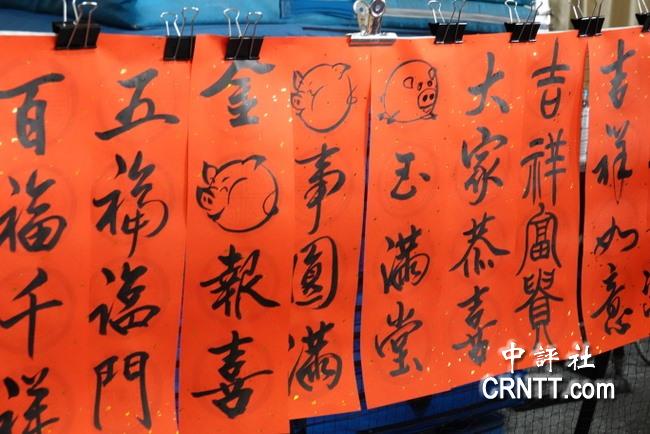 吉祥如意
吉祥富貴
大家恭喜
玉滿堂
事圓滿
金報喜
五福臨門
百福千祥
中評社
CRNTT.com